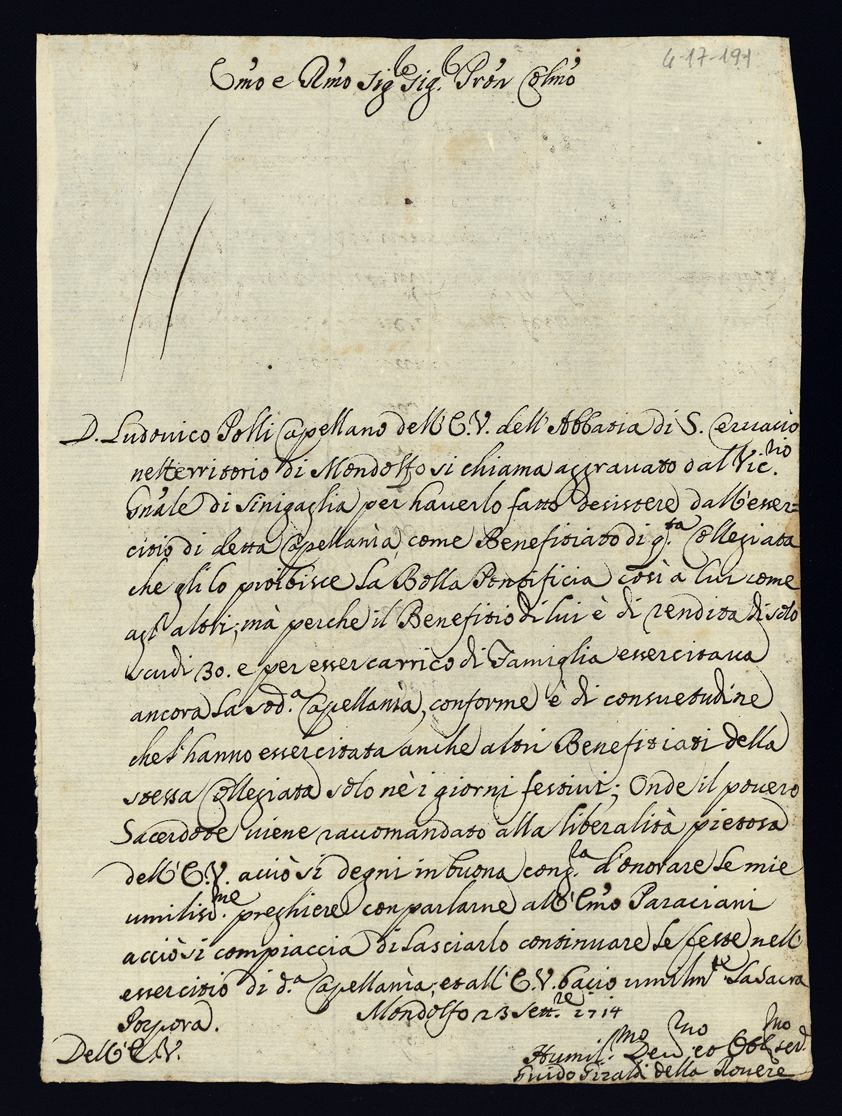 4-17-191
Em̃o e Rm̃o Sig.le Sig.e Prõn Colm̃o
D. Ludovico Polli Capellano dell'E.V. dell'Abbatia di S. Ceruasio
nel territorio di Mondolfo si chiama aggravato dal Vic.rio
Gñale di Sinigaglia per haverlo fatto desistere dall'esser-
citio di detta Capellanìa, come Benefitiato di q.ta Collegiata
che gli lo proibisce la Bolla Pontificia così a lui come
agl'altri; mà perche il Benefitio di lui è di rendita di solo
scudi 30. e per esser carrico di Famiglia essercitava
ancora la sod.a Capellanìa, conforme è di consuetudine
che l'hanno essercitata anche altri Benefitiati della
stessa Collegiata solo nè i giorni festivi; Onde il povero
Sacerdote viene raccomandato alla liberalità pietosa
dell'E.V. acciò si degni in buona cong.la d'onorare le mie
umiliss.me preghiere con parlarne all'Em̃o Paraciani
acciò si compiaccia di lasciarlo continuare le feste nell'
essercitio di d.a Capellanìa; et all'E.V. bacio umilm.te la Sacra
Porpora.
Mondolfo 23 Sett.re 1714
Dell'E.V.
Humil.mo Dev.mo et Obl. ser.mo
Guido Giraldi della Rovere